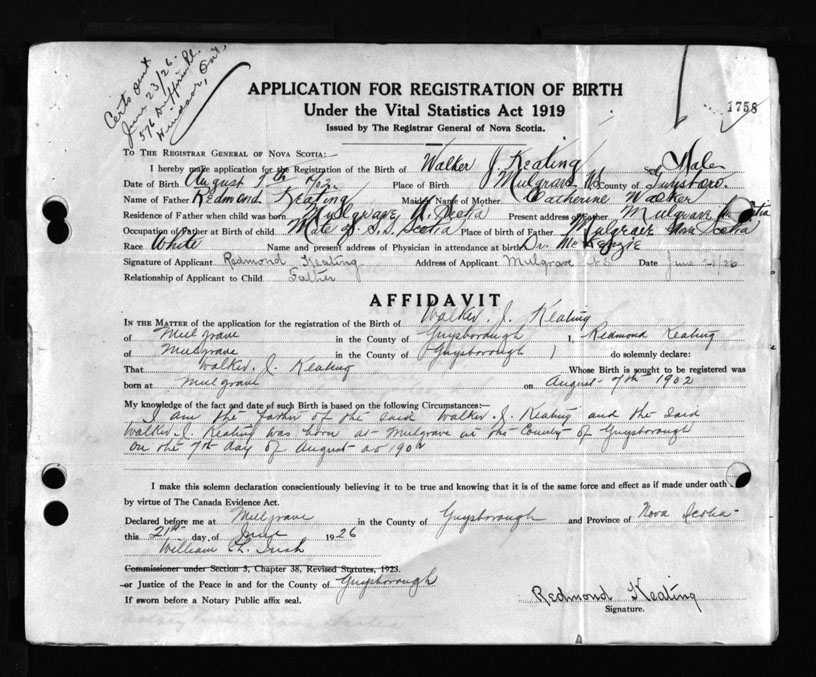 Certs sent
June 23/26.
576 Dufferin Pl.
Windsor, Ont.
APPLICATION FOR REGISTRATION OF BIRTH
Under the Vital Statistics Act 1919
Issued by The Registrar General of Nova Scotia.
1758
TO THE REGISTRAR GENERAL OF NOVA SCOTIA:
I hereby make application for the Registration of the Birth of Walker J Keating Male
Date of Birth August 7th 1902 Place of Birth Mulgrave County of Guysboro.
Name of Father Redmond Keating Maiden Name of Mother Catherine Walker
Residence of Father when child was born Mulgrave N. Scotia Present address of Father Mulgrave
Occupation of Father at Birth of child Mate of S.S. Scotia Place of birth of Father Mulgrave Nova Scotia
Race White Name and present address of Physician in attendance at birth Dr. McKenzie
Signature of Applicant Redmond Keating Address of Applicant Mulgrave N.S Date June 21/26
Relationship of Applicant to Child Father
AFFIDAVIT
IN THE MATTER of the application for the registration of the Birth of Walker. J. Keating
of Mulgrave in the County of Guysborough I, Redmond Keating
of Mulgrave in the County of Guysborough do solemnly declare:
That Walker. J. Keating Whose Birth is sought to be registered was
born at Mulgrave on August 7th 1902
My knowledge of the fact and date of such Birth is based on the following Circumstances:—
I am the father of the said Walker. J. Keating and the said
Walker. J. Keating was born at Mulgrave in the County of Guysborough
on the 7th day of August AD 1902
I make this solemn declaration conscientiously believing it to be true and knowing that it is of the same force and effect as if made under oath
by virtue of The Canada Evidence Act.
Declared before me at Mulgrave in the County of Guysborough and Province of Nova Scotia
this 21st day, of June 1926
William Ch. Irish
Commissioner under Section 3, Chapter 38, Revised Statutes, 1923.
or Justice of the Peace in and for the County of Guysborough
If sworn before a Notary Public affix seal.
Redmond Keating
Signature.